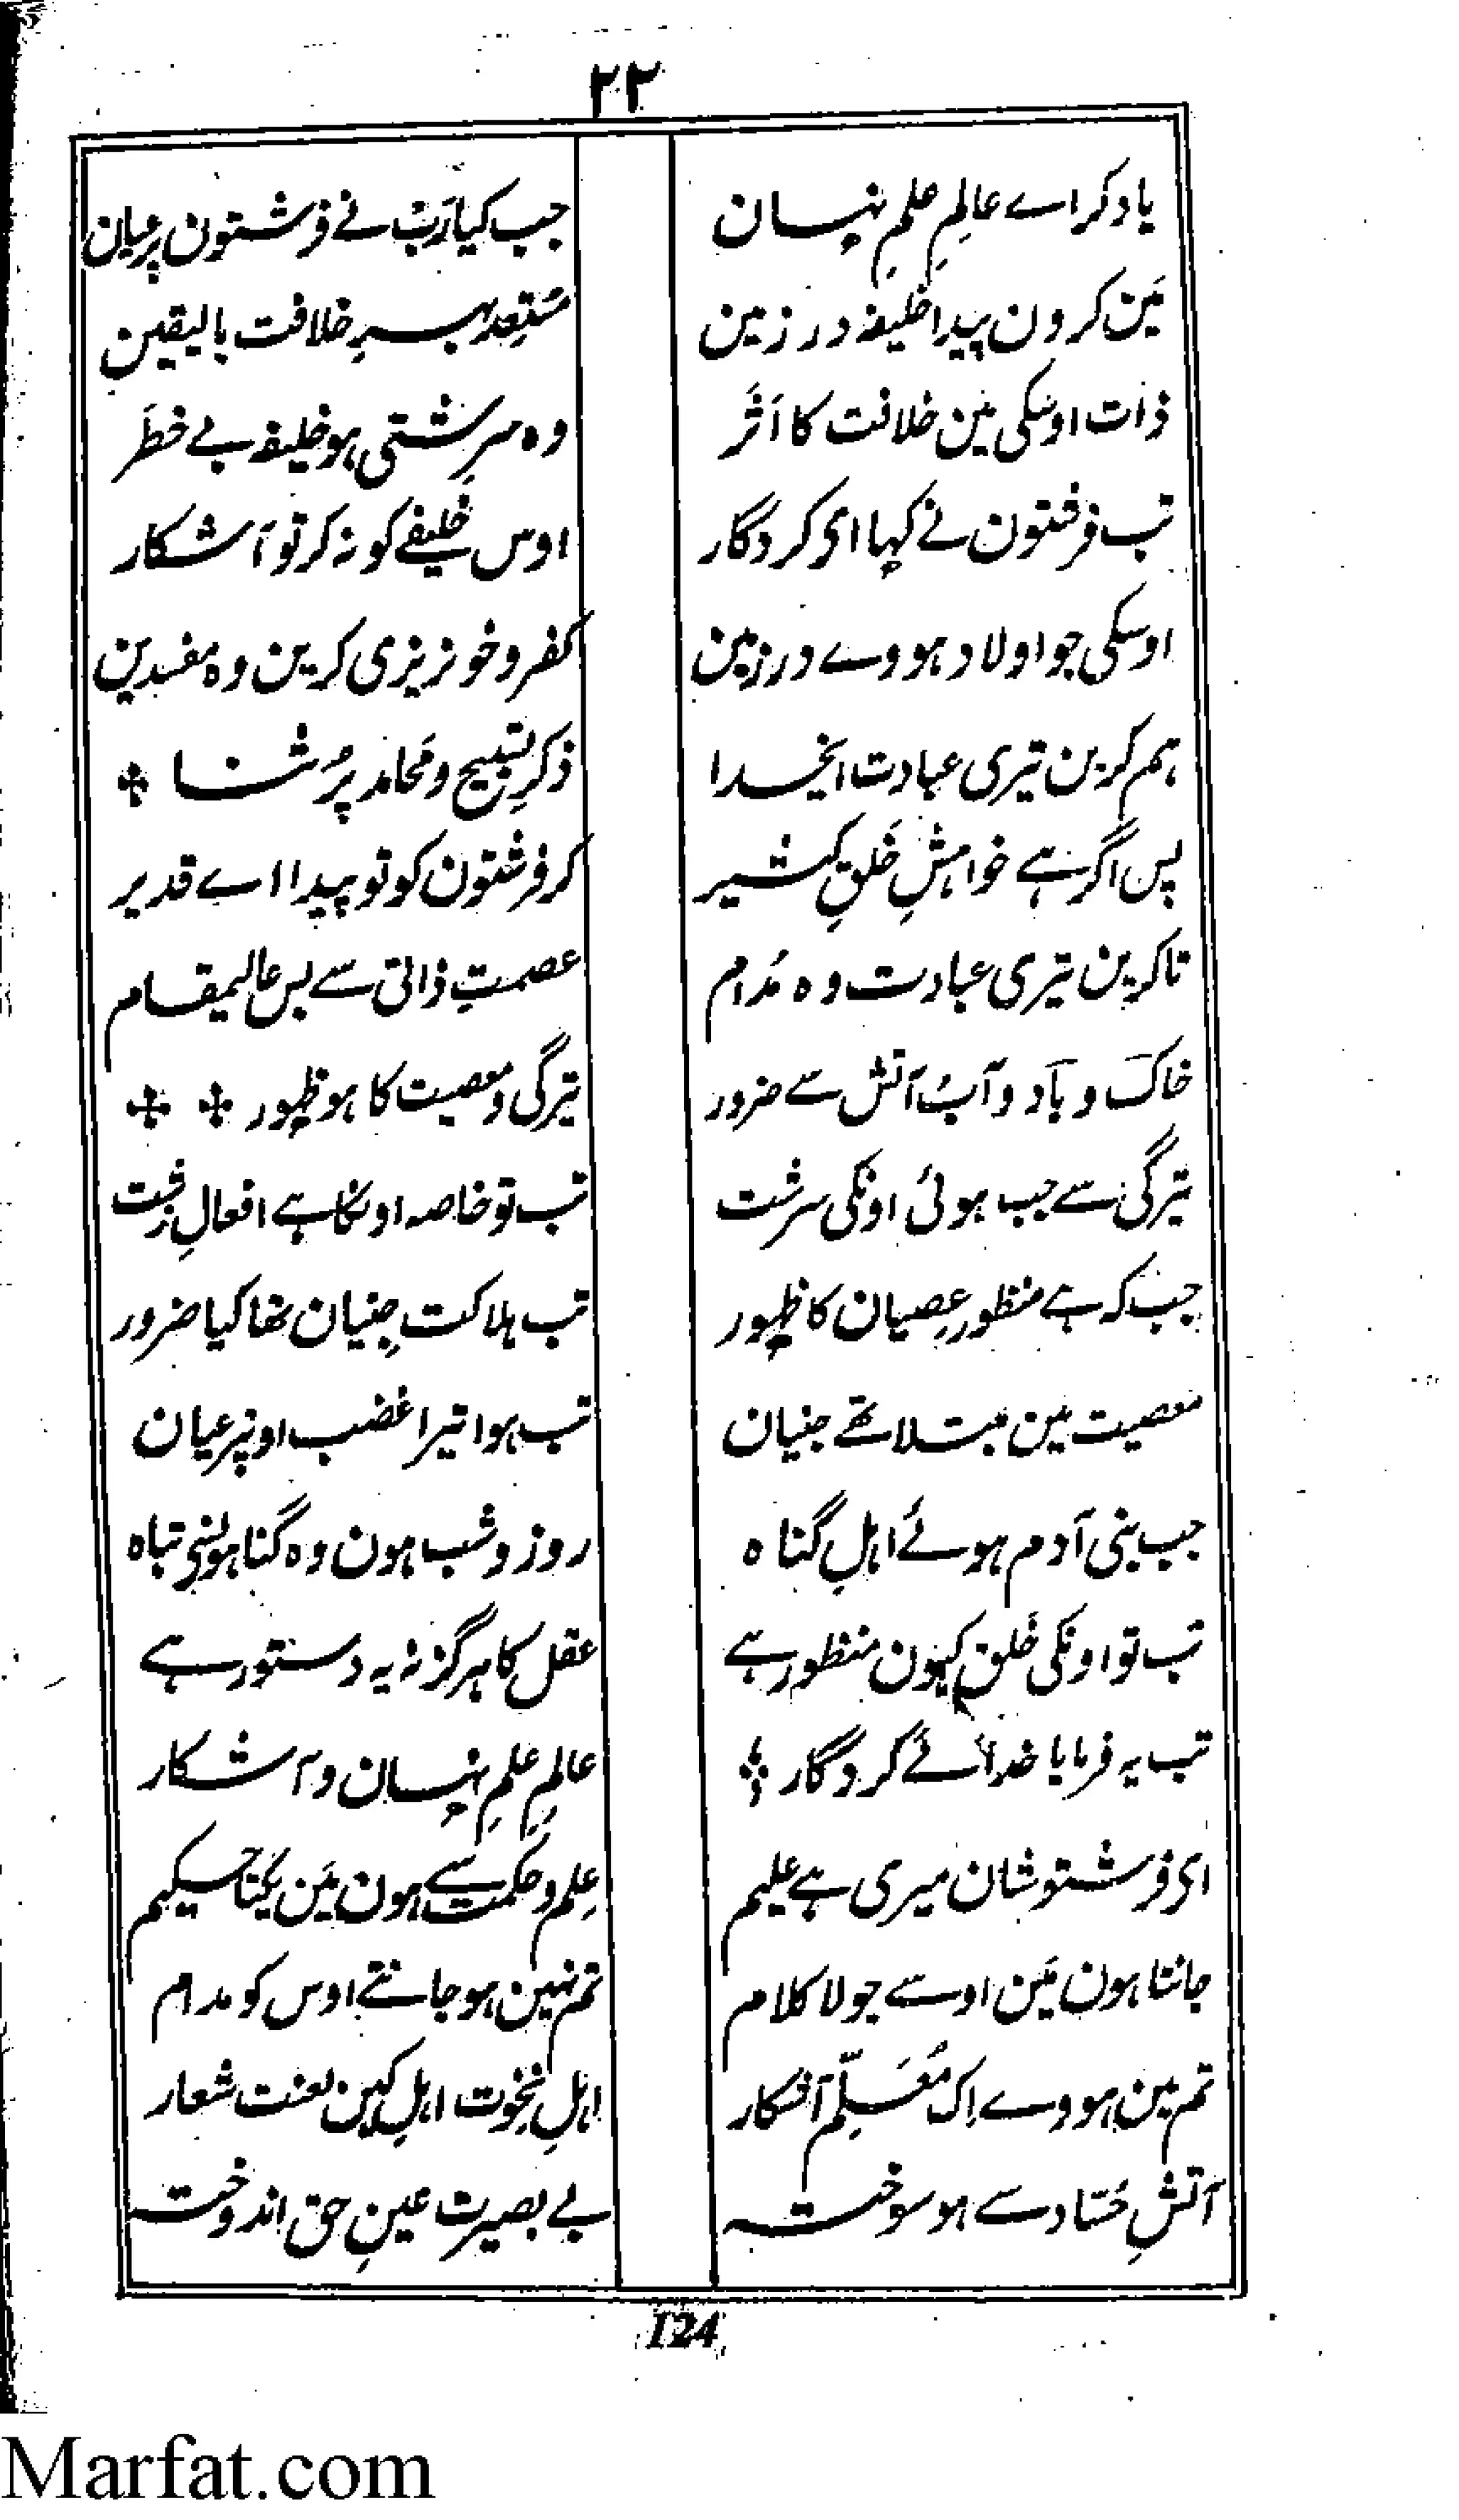 ۲۲
یاد کر اے عالمِ علمِ نہان
جب کیا رَبّ نے فرشتون پر عیان
مَین کرون پیدا خلیفہ در زمین
مُستعد بہرِ خلافت بالیقین
ذات اوسکی مین خلافت کا اَثَر
وہ سرِشتی ہو خلیفہ بے خطَر
تب فرشتون نے کہا ای کردگار
اوس خَلیفے کو نہ کر تو آشکار
اوسکی جو اولاد ہووے در زمین
کفر و خونریزی کرین وہ مفسدین
ہم کرین تیری عبادت ایخدا
ذکرِ تسبیح و مَحامد پرُ ثنا
پس اگر ہے خواہشِ خَلقِ کثیر
کر فرشتون کو تو پیدا اے قدیر
تا کرین تیری عبادت وہ مُدام
عصمتِ ذاتی سے بس عالیمقام
خاک و باد و آب آتش سے ضرور
تیرگی و معصیت کا ہو ظہور
تیرگی سے جب ہوئی اونکی سرشت
تب تو خاصہ اونکا ہے افعالِ زشت
جب کہ ہے منظور عِصیان کا ظہور
تب ہلاکت جِنیان تھا کیا ضرور
معصیت مین مبتلا تھے جنیان
تب ہوا تیرا غضب اونپر عیان
جب بنی آدم ہوئے اہلِ گناہ
روز و شب ہون وہ گناہونسی تباہ
تب تو اونکی خَلق کیون منظور ہے
عقل کا ہرگز نہ یہ دستور ہے
تب یہ فرمایا خدائے کردگار
عالمِ علمِ نہان و آشکار
ای فرشتو شان میری ہے علیم
عِلم و حکمت سے ہون مَین یکتا حکیم
جانتا ہون مَین اوسے جو لا کلام
تم نہین ہو جانتے اوس کو مدام
تم مین ہووے اِک مُعَلِّم آشکار
اہلِ نخوت اہلِ کین لعنت شعار
آتشِ حَسّاد سے ہو سوختہ
بے بصیرت عینِ حق اندوختہ
124
Marfat.com